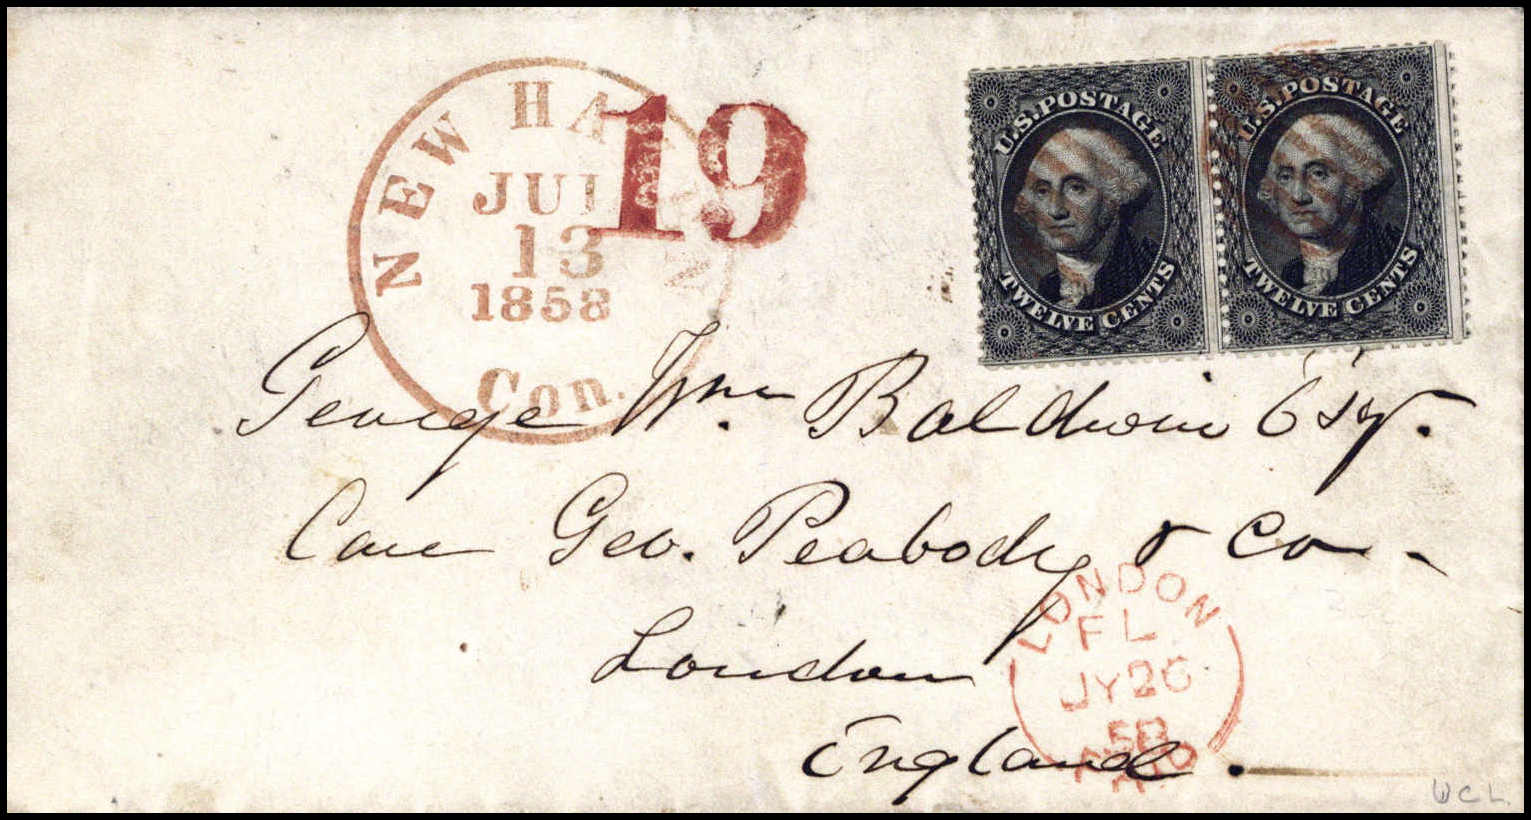 NEW HAVEN
JUL
13
1858
Con.
19
U.S. POSTAGE
TWELVE CENTS
U.S. POSTAGE
TWELVE CENTS
George Wm. Baldwin Esq.
Care Geo. Peabody & Co.
London
England.
LONDON
FL
JY 26
58
PAID
WCL